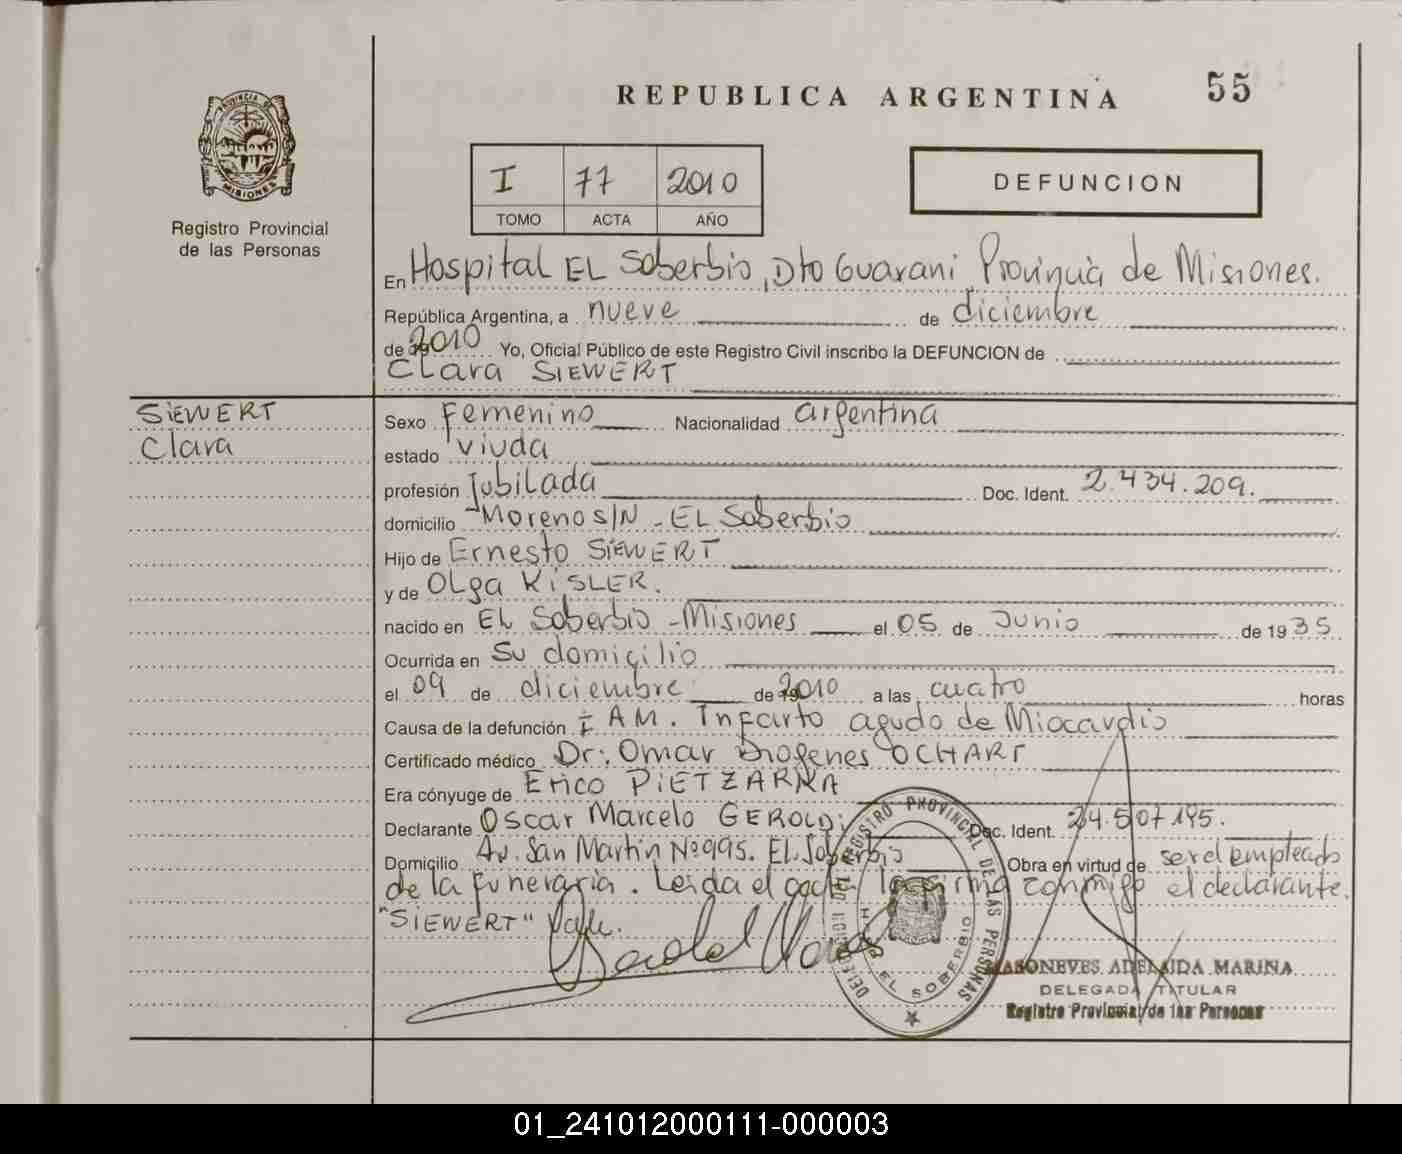 REPUBLICA ARGENTINA
55
PROVINCIA DE
MISIONES
Registro Provincial
de las Personas
I 77 2010
TOMO ACTA AÑO
DEFUNCION
En Hospital EL Soberbio, Dto Guarani Provincia de Misiones.
República Argentina, a nueve de diciembre
de 2010 Yo, Oficial Público de este Registro Civil inscribo la DEFUNCION de
Clara SIEWERT
SIEWERT
Clara
Sexo Femenino Nacionalidad argentina
estado Viuda
profesión Jubilada Doc. Ident. 2.434.209.
domicilio Moreno S/N - EL Soberbio
Hijo de Ernesto SIEWERT
y de OLga KISLER.
nacido en EL Soberbio - Misiones el 05 de Junio de 1935
Ocurrida en Su domicilio
el 09 de diciembre de 2010 a las cuatro horas
Causa de la defunción I AM. Infarto agudo de Miocardio
Certificado médico Dr: Omar Diogenes OCHART
Era cónyuge de Erico PIETZARKA
Declarante Oscar Marcelo GEROLD; Doc. Ident. 24.507.195.
Domicilio Av. San Martin Nº995. EL Soberbio Obra en virtud de ser el empleado
de la funeraria. Leida el acta la firma conmigo el declarante.
"SIEWERT" Vale.
REGISTRO PROVINCIAL DE LAS PERSONAS
EL SOBERBIO
MASONEVES ADELAIDA MARINA
DELEGADA TITULAR
Registro Provincial de las Personas
01_241012000111-000003